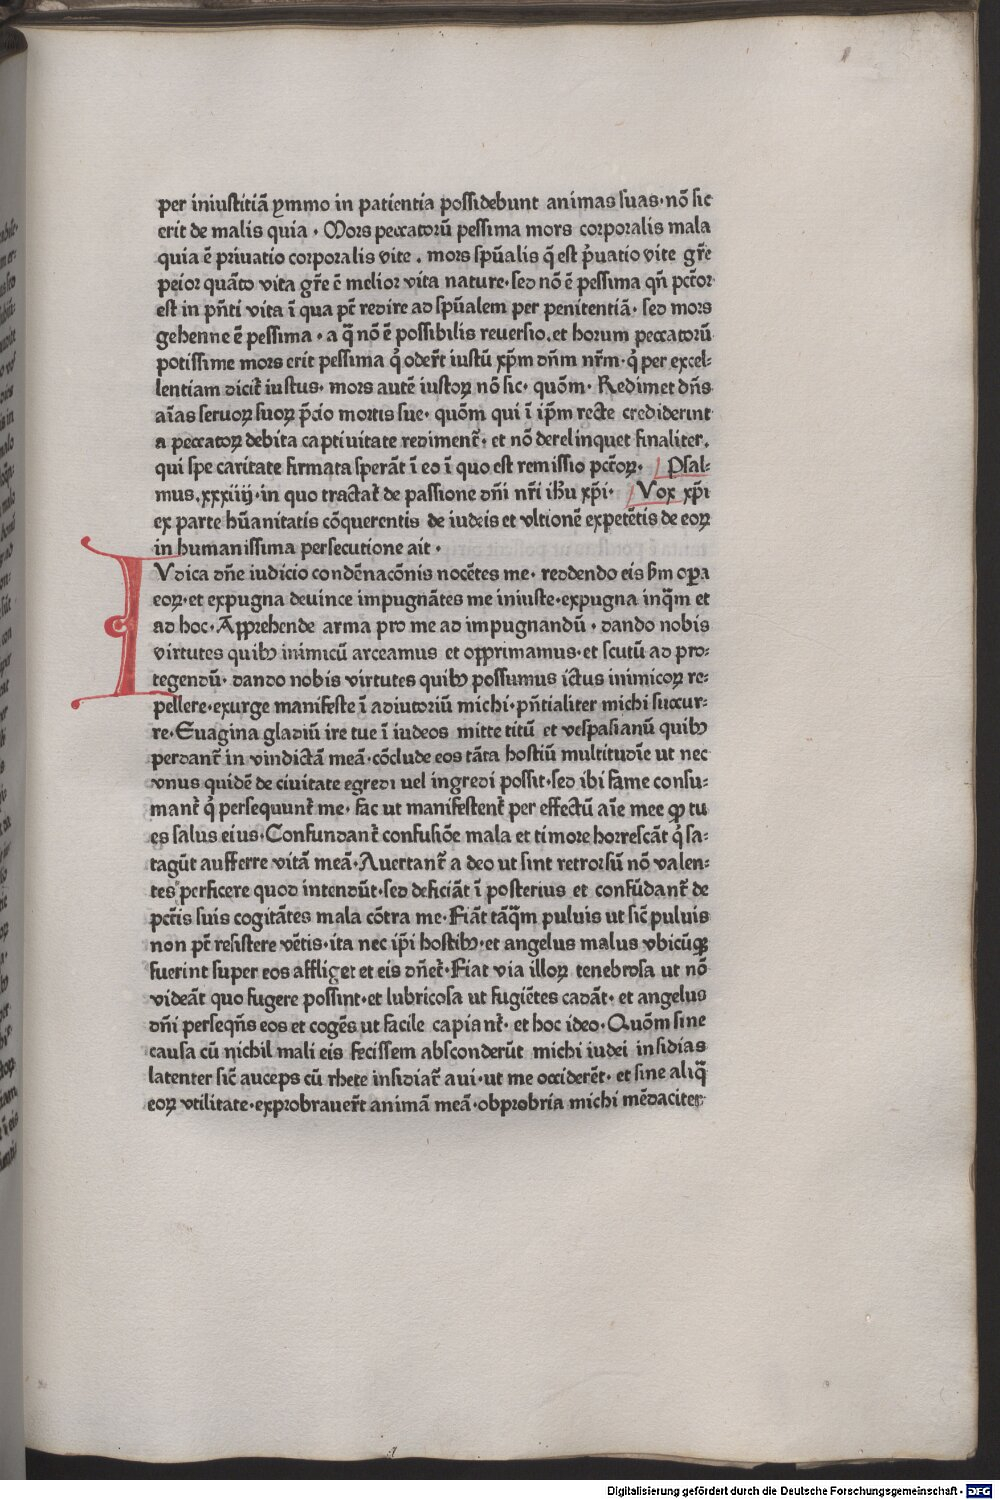 per iniustitiā ymmo in patientia possidebunt animas suas· nō sic
erit de malis quia · Mors peccatorū pessima mors corporalis mala
quia ē priuatio corporalis vite . mors spūalis q̄ est p̄uatio vite gr̄e
peior quāto vita gr̄e ē melior vita nature· sed nō ē pessima qn̄ pctōr
est in pn̄ti vita ī qua pt̄ redire ad spūalem per penitentiā· sed mors
gehenne ē pessima · a q̄ nō ē possibilis reuersio. et horum peccatorū
potissime mors erit pessima q̇ oder̄t iustū xp̄m dn̄m nr̄m· q̇ per excel⸗
lentiam dicit᷑ iustus· mors autē iustoꝝ nō sic· quōm· Redimet dn̄s
aīas seruoꝝ suoꝝ p̄cio mortis sue· quōm qui ī ip̄m recte crediderint
a peccatoꝝ debita captiuitate redimen̄t᷑· et nō derelinquet finaliter.
qui spe caritate firmata sperāt ī eo ī quo est remissio pctōꝝ· Psal⸗
mus .xxxiiij· in quo tractat᷑ de passione dn̄i nr̄i ih̄u xp̄i· Vox xp̄i
ex parte hūanitatis cōquerentis de iudeis et vltionē expetētis de eoꝝ
in humanissima persecutione ait ·
IVdica dn̄e iudicio condēnacōnis nocētes me· reddendo eis s̄m oꝑa
eoꝝ· et expugna deuince impugnātes me iniuste· expugna inq̄m et
ad hoc· Apprehende arma pro me ad impugnandū · dando nobis
virtutes quibꝰ inimicū arceamus et opprimamus· et scutū ad pro⸗
tegendū· dando nobis virtutes quibꝰ possumus ictus inimicoꝝ re⸗
pellere· exurge manifeste ī adiutoriū michi· pn̄tialiter michi succur⸗
re· Euagina gladiū ire tue ī iudeos mitte titū et vespasianū quibꝰ
perdant᷑ in vindictā meā· cōclude eos tāta hostiū multitudīe ut nec
vnus quidē de ciuitate egredi uel ingredi possit· sed ibi fame consu⸗
mant᷑ q̇ persequunt᷑ me· fac ut manifestent᷑ per effectū aīe mee ꝙ tu
es salus eius· Confundant᷑ confusiōe mala et timore horrescāt q̇ sa⸗
tagūt aufferre vitā meā· Auertant᷑ a deo ut sint retrorsū nō valen⸗
tes perficere quod intendūt· sed deficiāt ī posterius et confūdant᷑ de
pctīs suis cogitātes mala cōtra me· Fiāt tāq̄m puluis ut sic̄ puluis
non pt̄ resistere vētis· ita nec ip̄i hostibꝰ· et angelus malus vbicūqꝫ
fuerint super eos affliget et eis dn̄et᷑· Fiat via illoꝝ tenebrosa ut nō
videāt quo fugere possint· et lubricosa ut fugiētes cadāt· et angelus
dn̄i perseqn̄s eos et cogēs ut facile capiant᷑· et hoc ideo· Quōm sine
causa cū nichil mali eis fecissem absconderūt michi iudei insidias
latenter sic̄ auceps cū rhete insidiat᷑ aui· ut me occiderēt· et sine aliq̄
eoꝝ vtilitate· exprobrauer̄t animā meā· obprobria michi mēdaciter